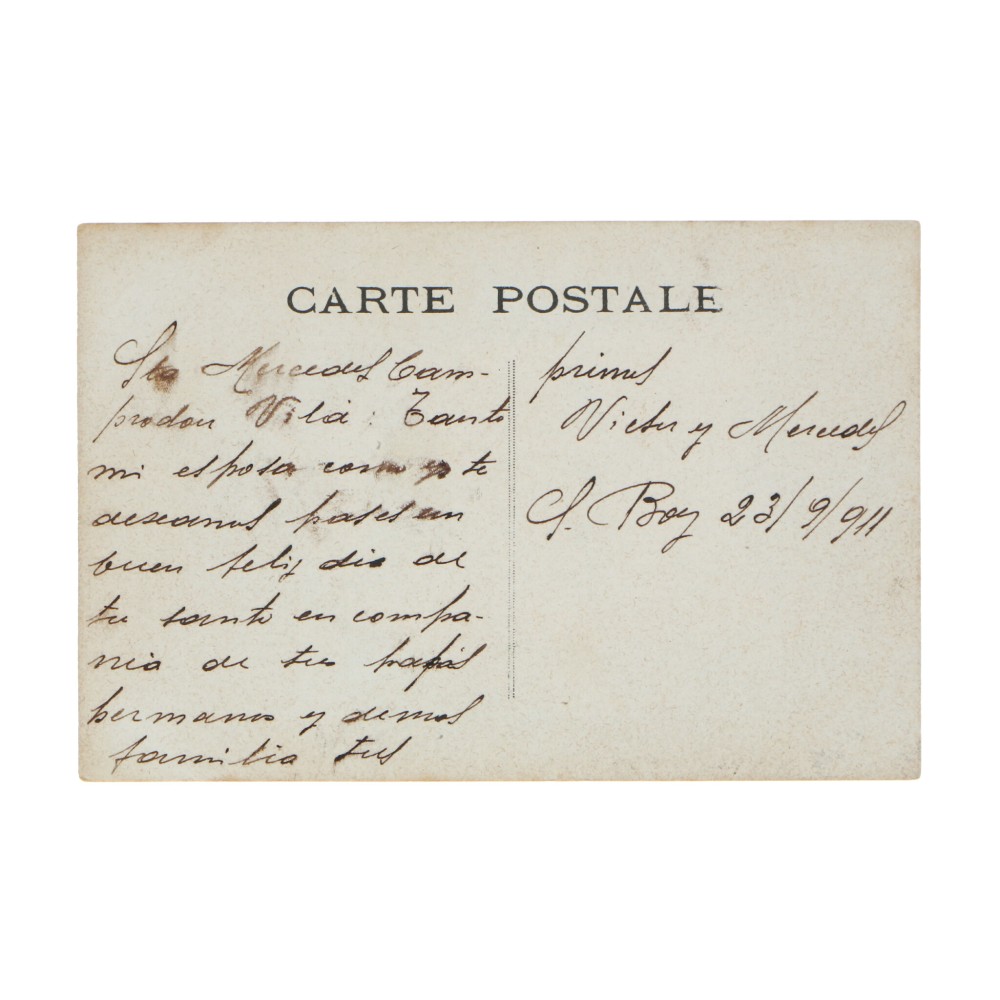 CARTE POSTALE
Sta Mercedes Cam-
prodon Vilá: Tanto
mi esposa como yo te
deseamos pases un
buen feliz dia de
tu santo en compa-
nia de tus papás
hermanos y demas
familia tus
primos
Victor y Mercedes
S. Boy 23/9/911